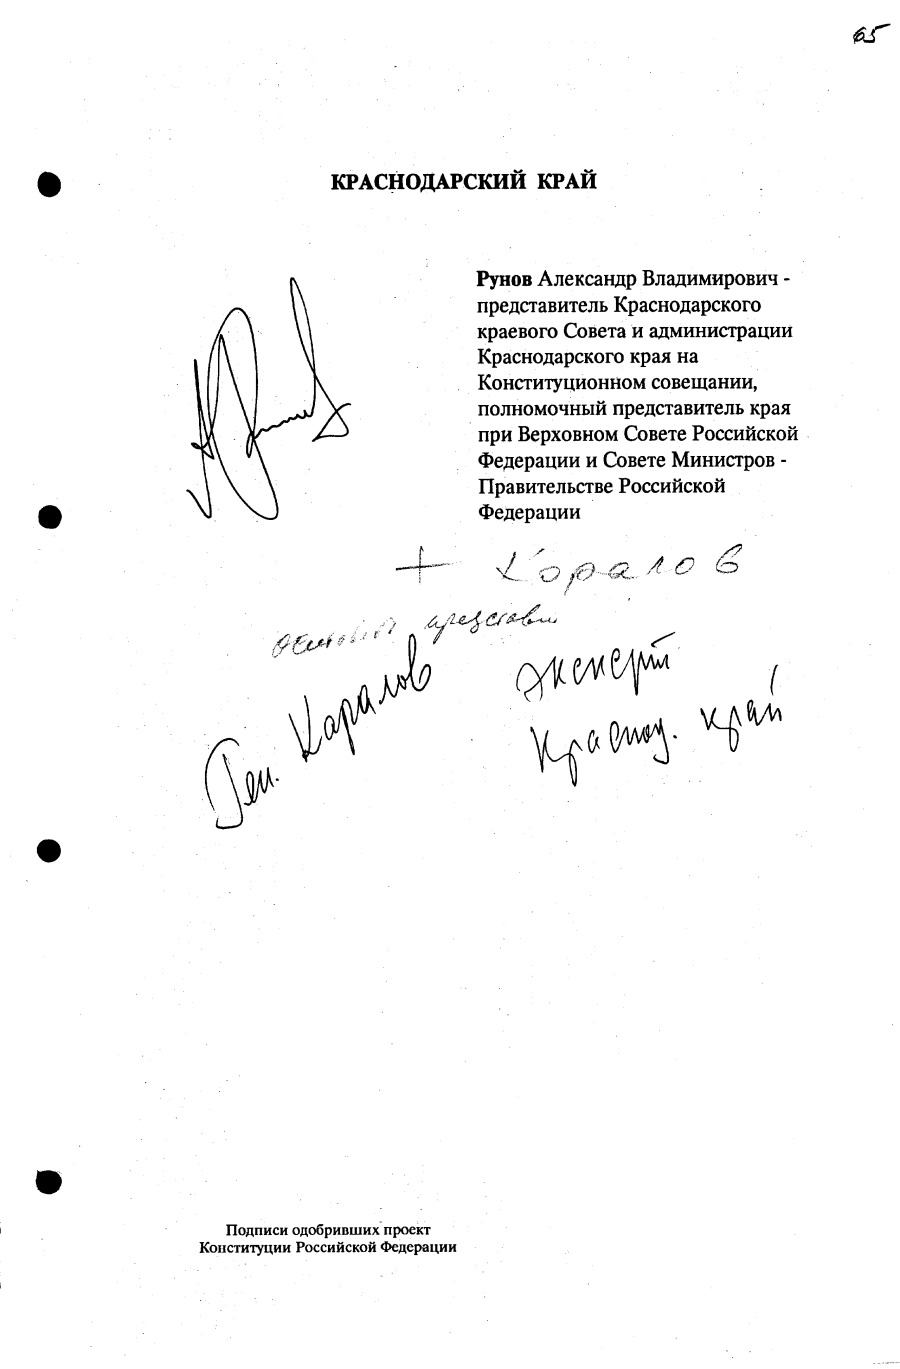 65
КРАСНОДАРСКИЙ КРАЙ
Рунов Александр Владимирович -
представитель Краснодарского
краевого Совета и администрации
Краснодарского края на
Конституционном совещании,
полномочный представитель края
при Верховном Совете Российской
Федерации и Совете Министров -
Правительстве Российской
Федерации
+ Коралов
представи
Ген. Каралов
эксперт
Красноу. край
Подписи одобривших проект
Конституции Российской Федерации